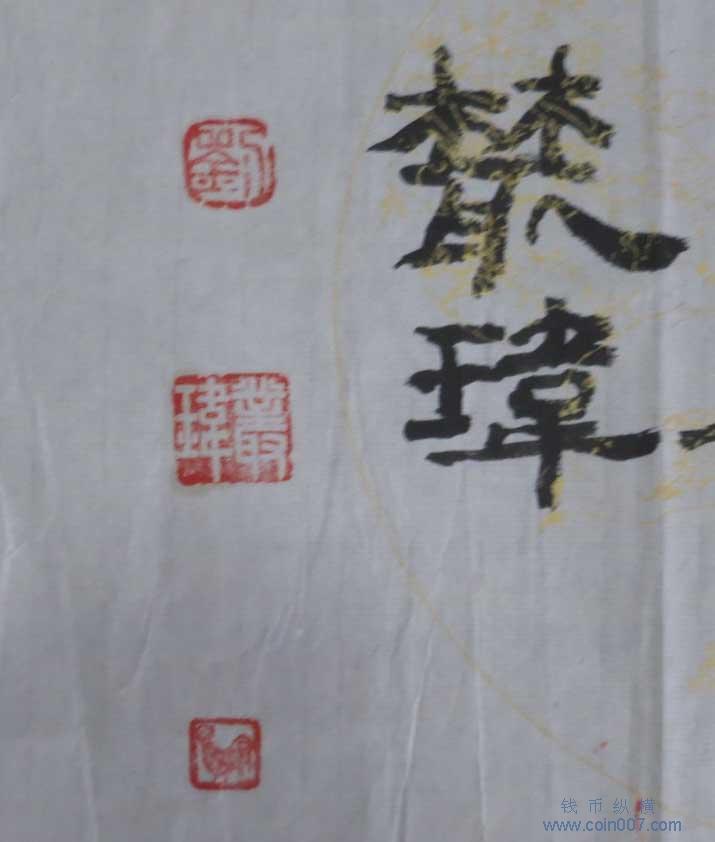 叢
瑋
劉
叢瑋
钱币纵横
www.coin007.com